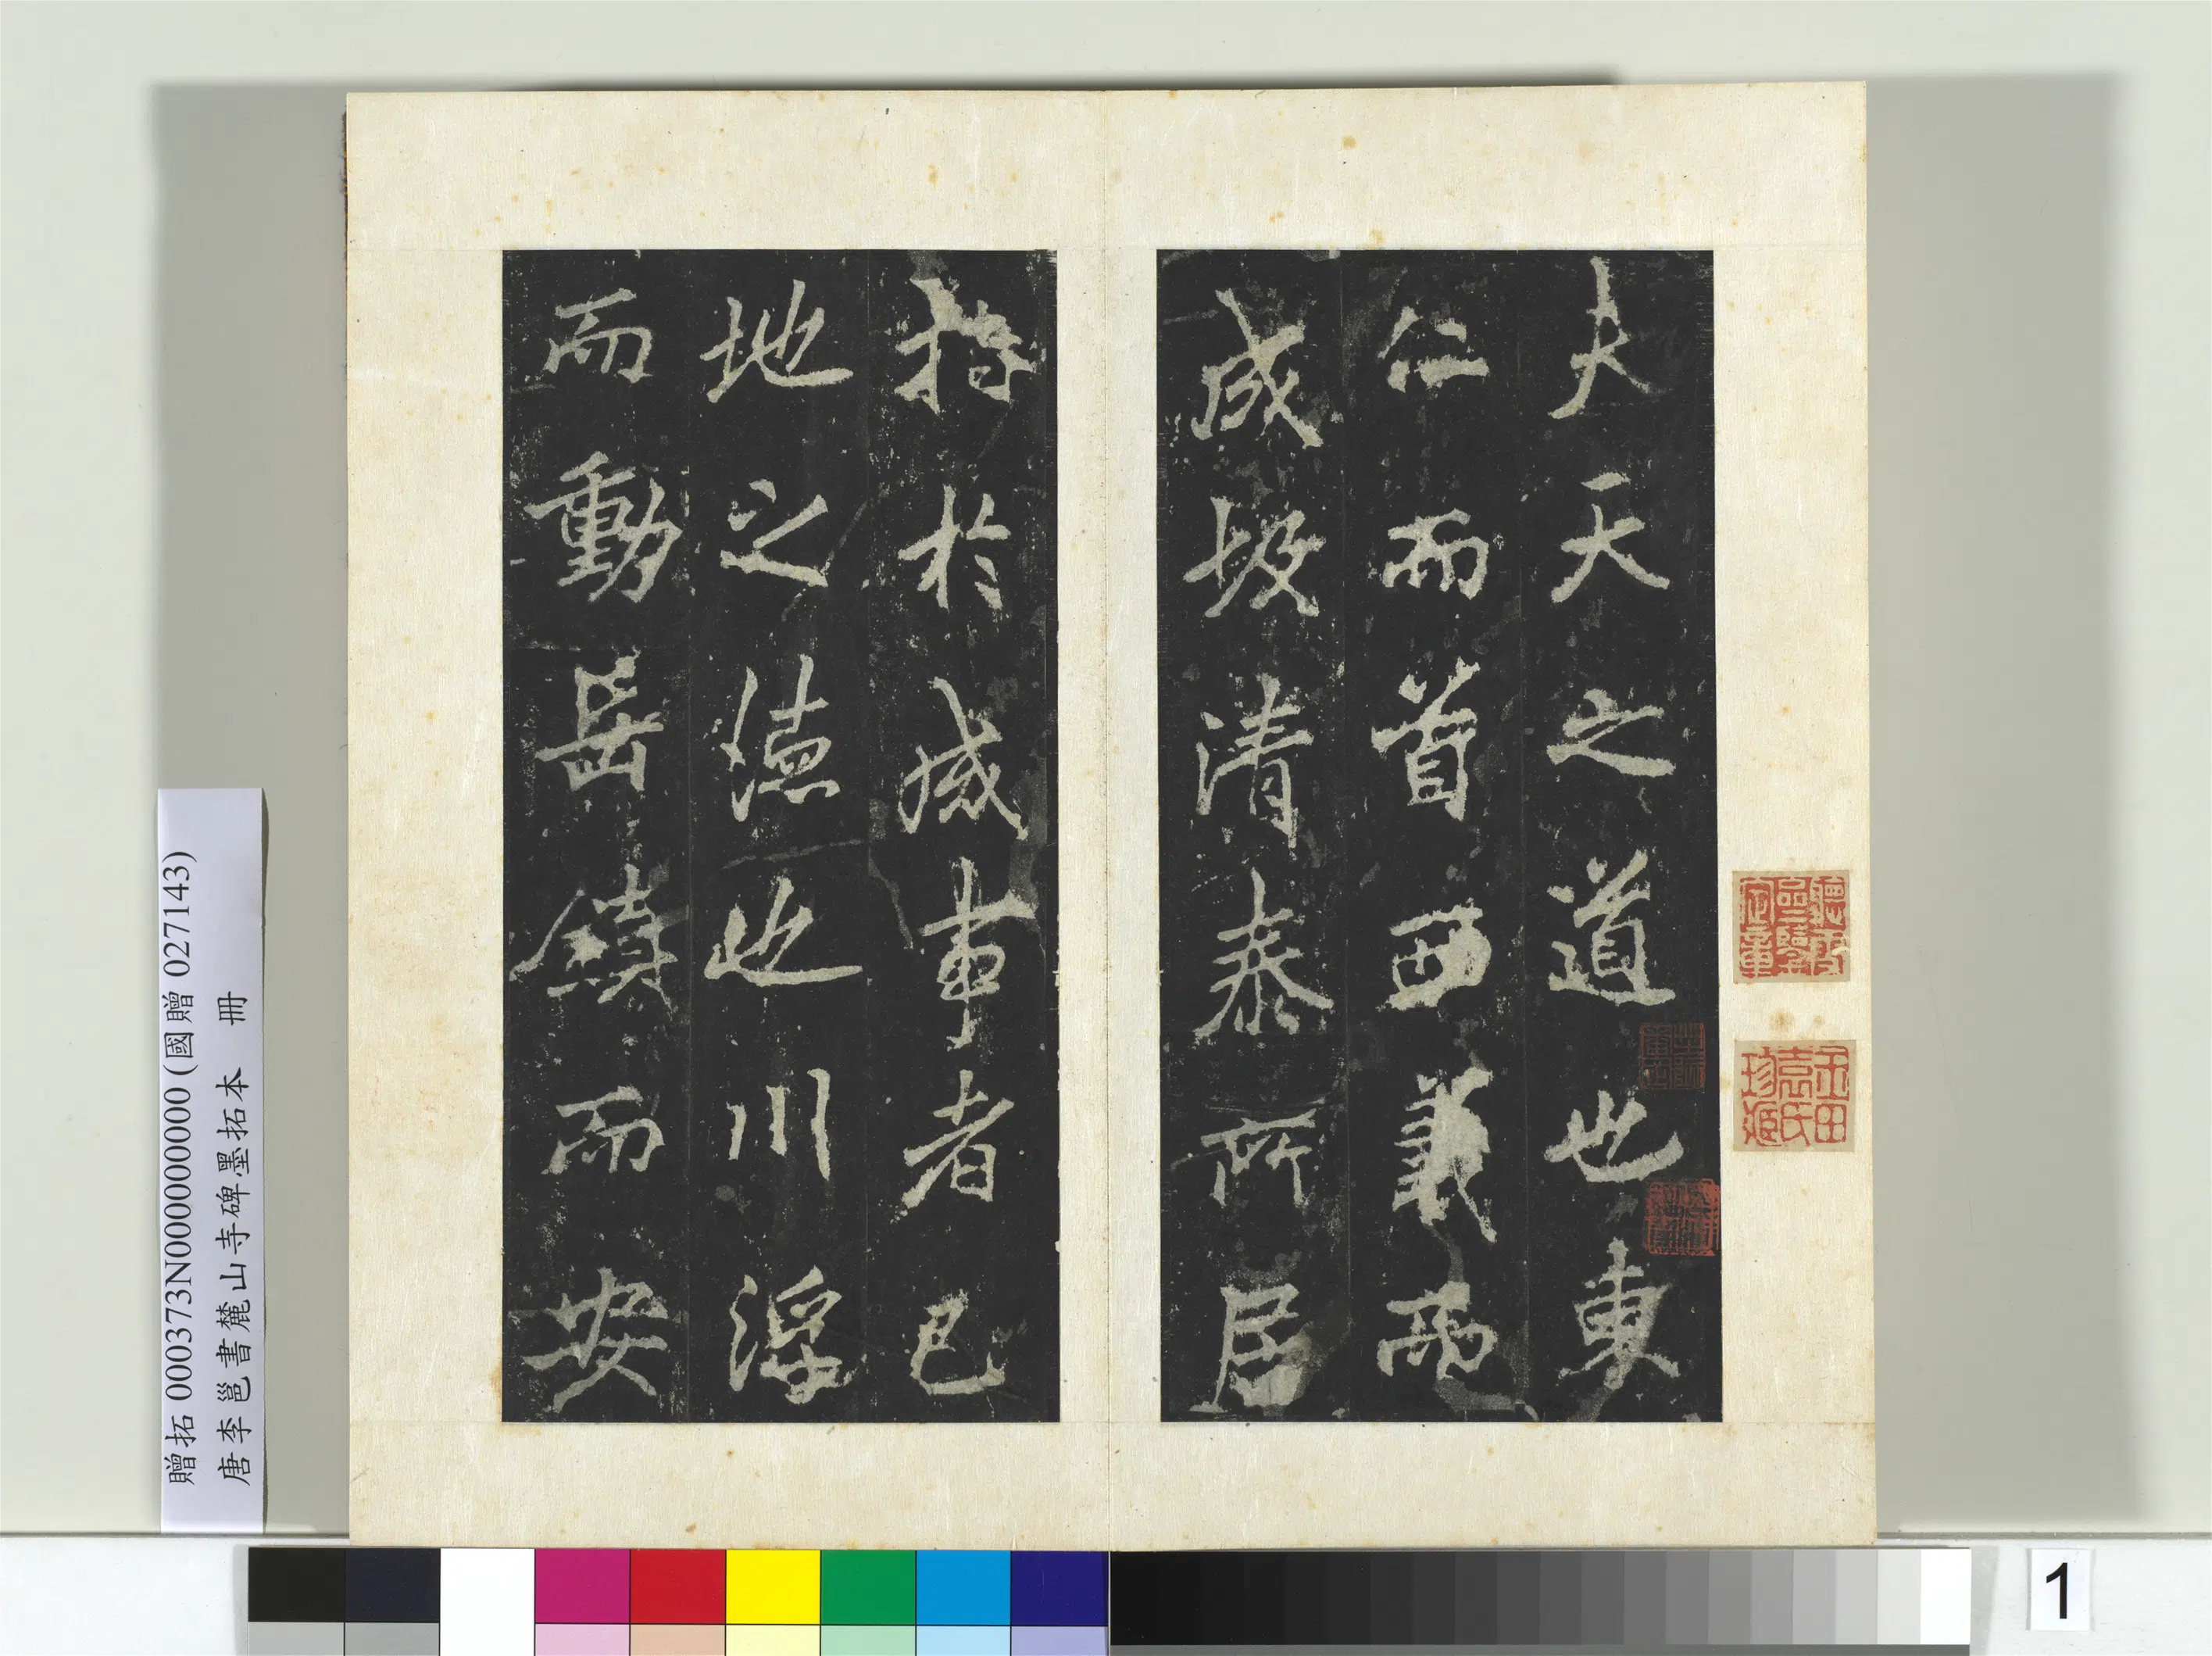 夫天之道也東
仁而首西義而
成按清泰所居
将於咸事者已
地之德也川浮
而動岳鎮而安
贈拓 000373N000000000 (國贈 027143)
唐李邕書麓山寺碑墨拓本 冊
1